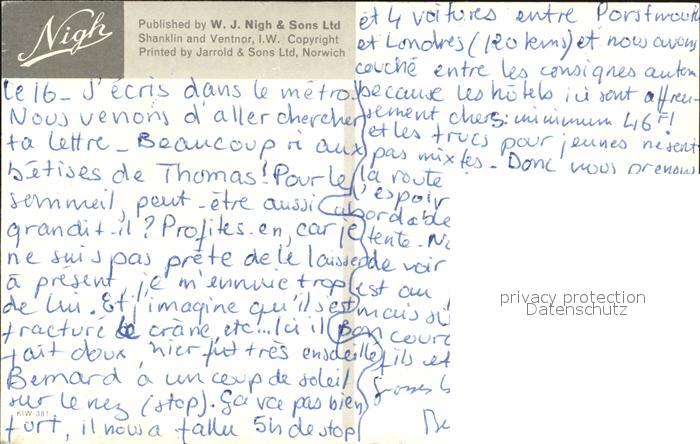 Nigh
Published by W. J. Nigh & Sons Ltd
Shanklin and Ventnor, I.W. Copyright
Printed by Jarrold & Sons Ltd, Norwich
Le 16_ J'écris dans le métro.
Nous venons d'aller chercher
ta lettre_ Beaucoup ri aux
bêtises de Thomas! Pour le
sommeil, peut-être aussi
grandit-il? Profites-en, car je
ne suis pas prête de le laisser
à présent, je m'ennuie trop
de lui. Et j'imagine qu'il s'est
fracturé le crâne, etc... Ici il
fait doux, hier fut très ensoleillé,
Bernard a un coup de soleil
sur le nez (stop). Ça va pas bien
fort, il nous a fallu 5h de stop
KIW 381
et 4 voitures entre Porstmouth
et Londres (120 kms) et nous avons
couché entre les consignes autom
because les hôtels ici sont affreu-
sement chers: minimum 46F!
et les trucs pour jeunes ne sont
pas mixtes_ Donc nous prenons
la route
l'espoir
abordable
tente_ No
de voir
est au
mais si
Bon cour
fils et
Grosses b
Be
privacy protection
Datenschutz